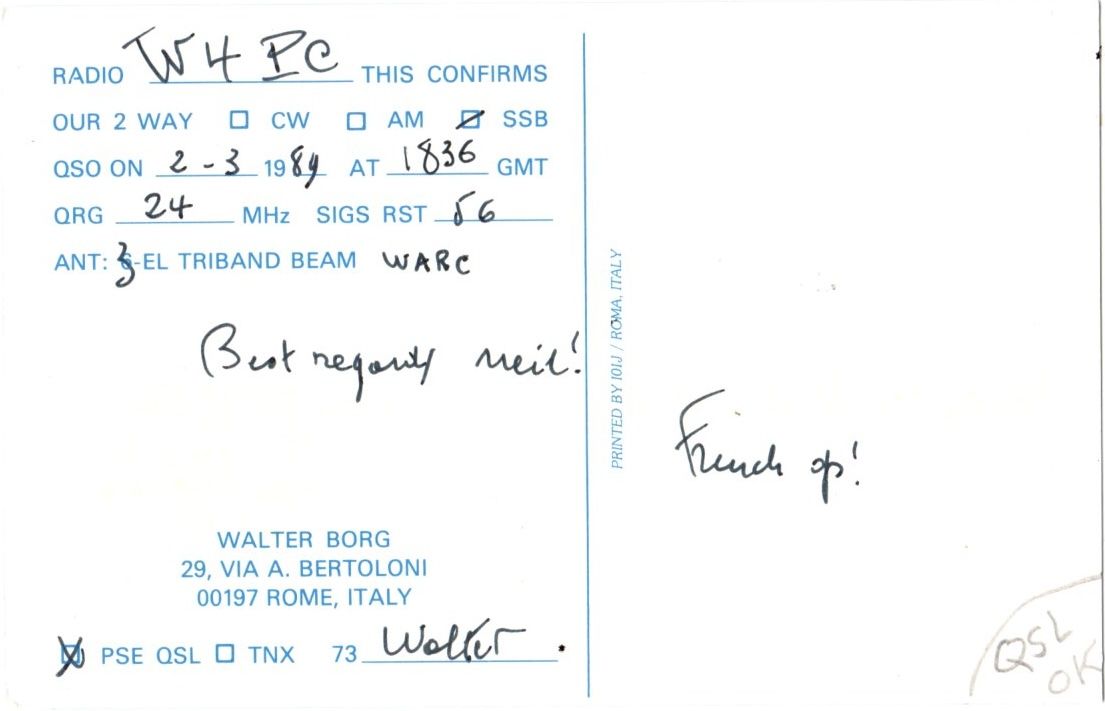 RADIO W4PC THIS CONFIRMS
OUR 2 WAY ☐ CW ☐ AM ☑ SSB
QSO ON 2-3 1989 AT 1836 GMT
QRG 24 MHz SIGS RST 56
ANT: 3-EL TRIBAND BEAM WARC
Best regards neil!
WALTER BORG
29, VIA A. BERTOLONI
00197 ROME, ITALY
☒ PSE QSL ☐ TNX 73 Walter.
PRINTED BY I0IJ / ROMA, ITALY
French op!
QSL
OK